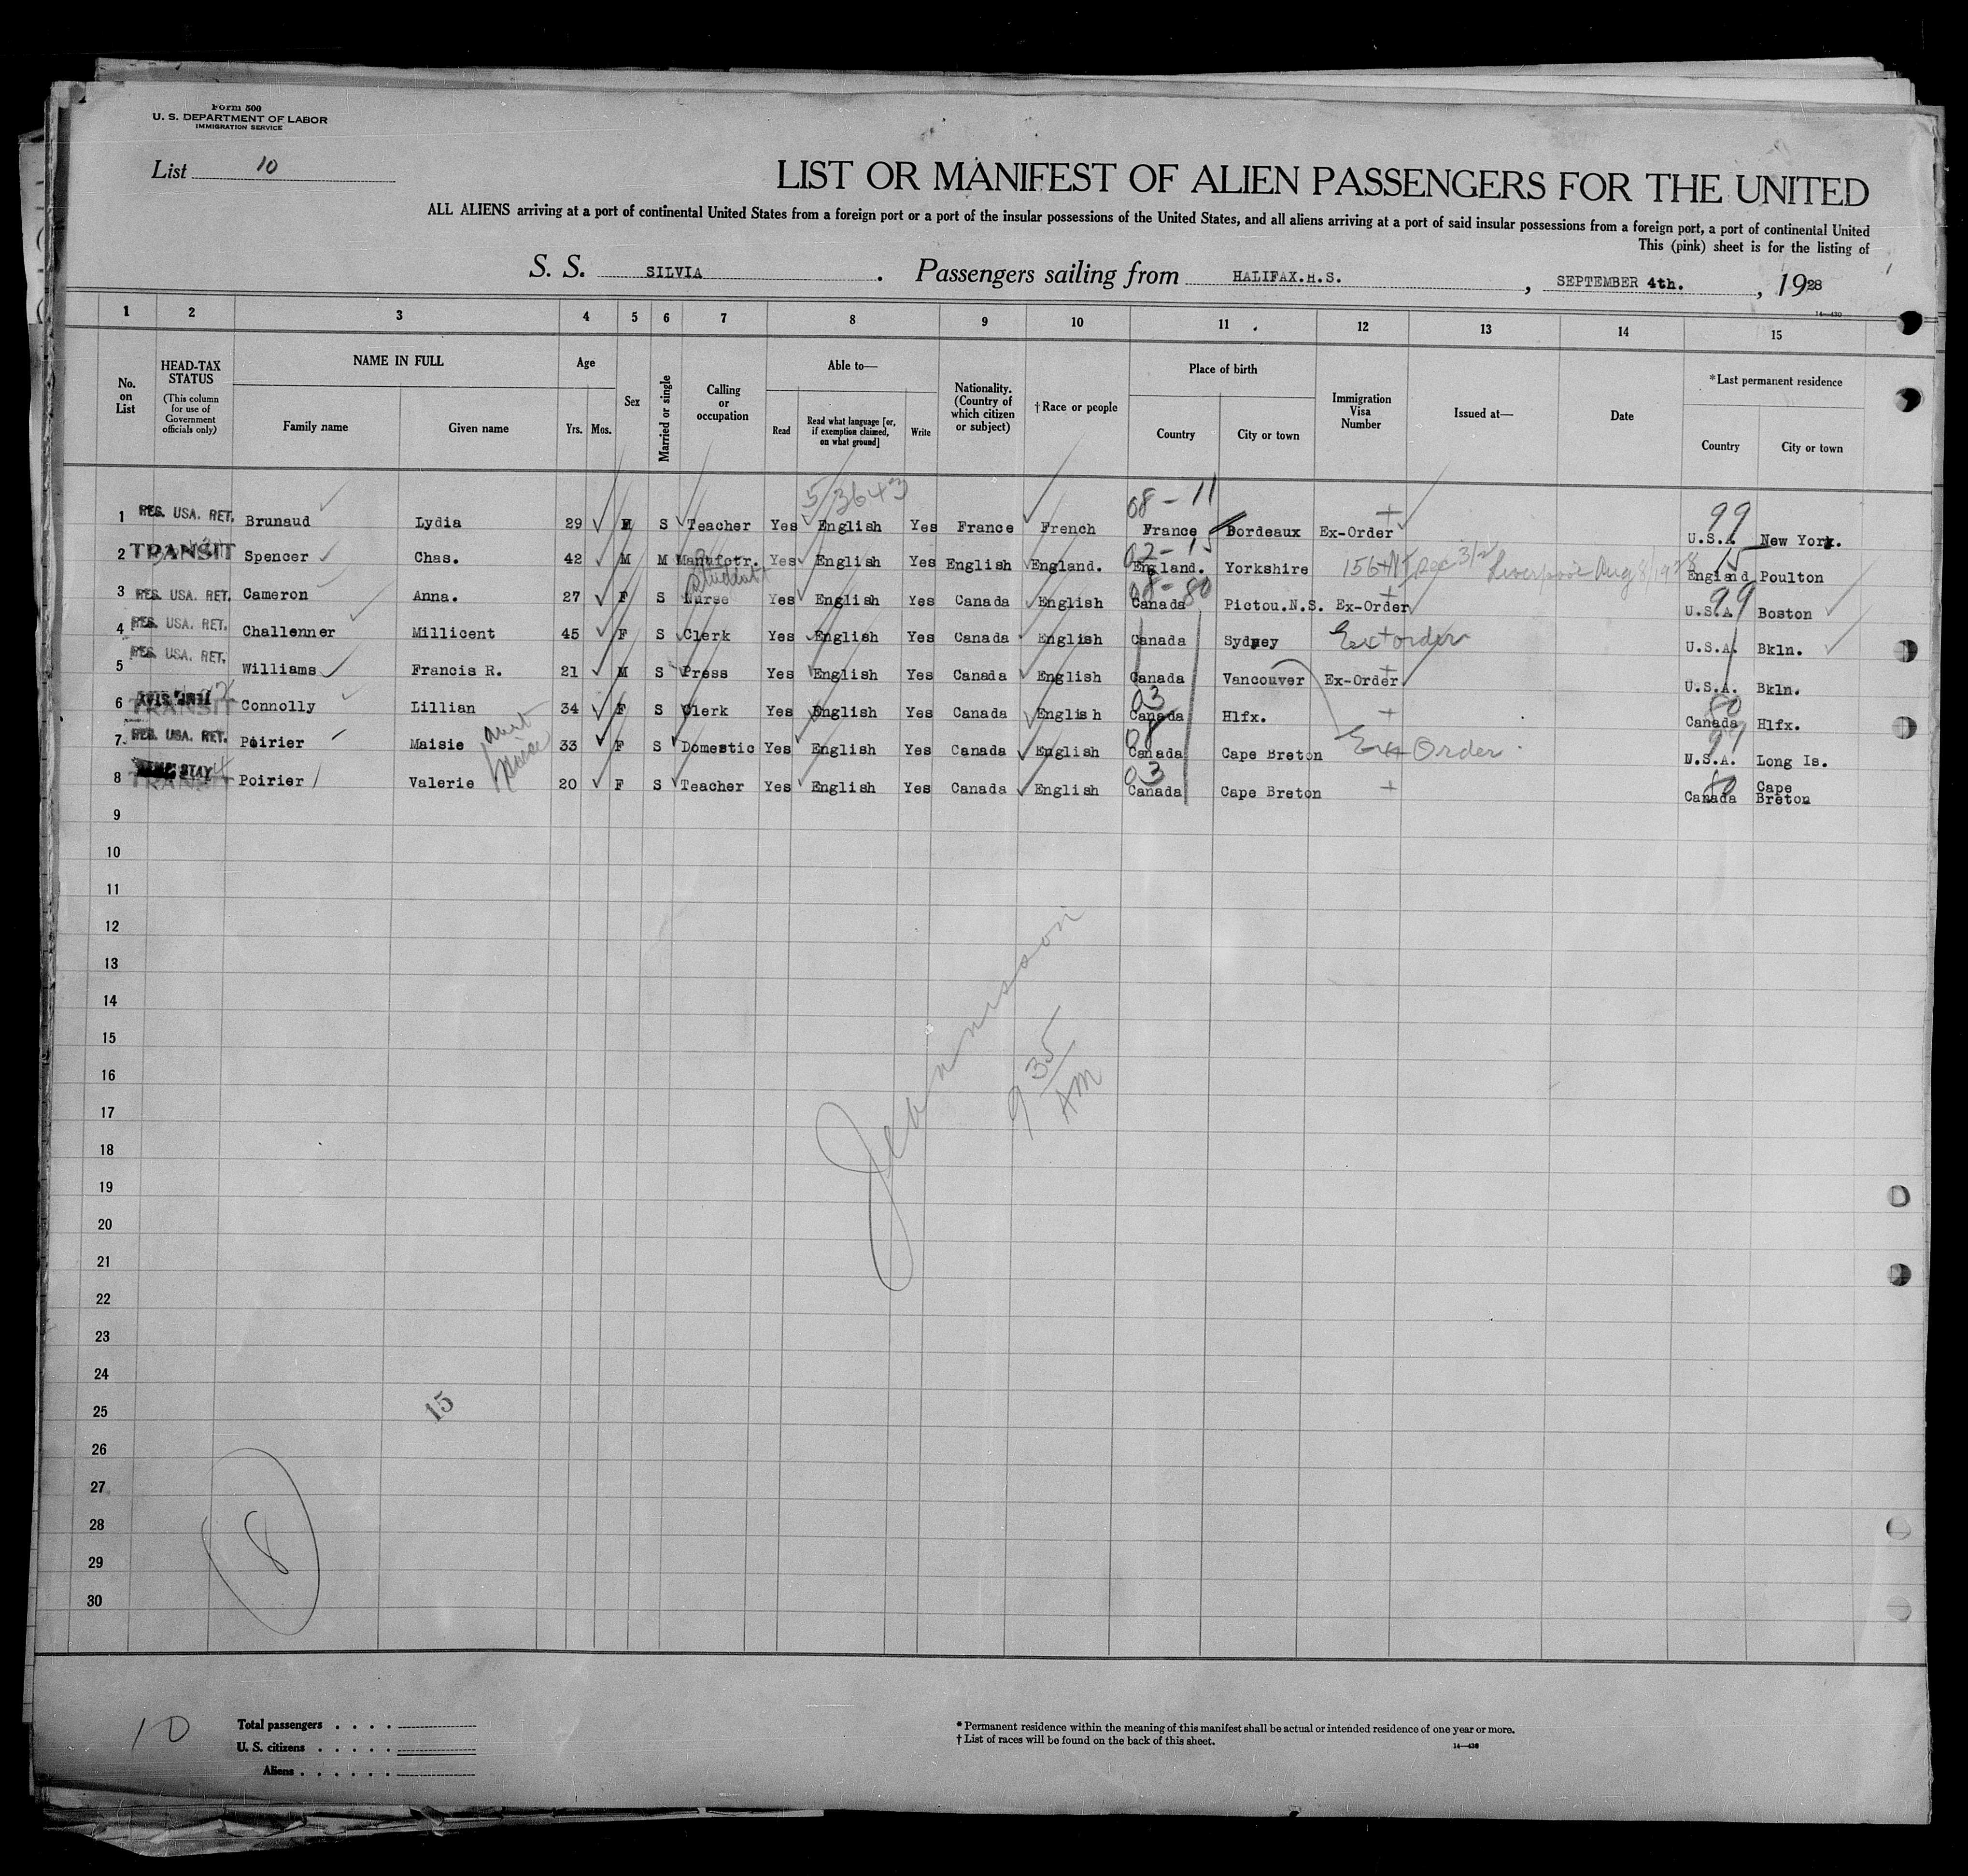 Form 500
U. S. DEPARTMENT OF LABOR
IMMIGRATION SERVICE
List 10
LIST OR MANIFEST OF ALIEN PASSENGERS FOR THE UNITED
ALL ALIENS arriving at a port of continental United States from a foreign port or a port of the insular possessions of the United States, and all aliens arriving at a port of said insular possessions from a foreign port, a port of continental United
This (pink) sheet is for the listing of
S. S. SILVIA. Passengers sailing from HALIFAX.H.S., SEPTEMBER 4th., 1928
14—430
1 2 3 4 5 6 7 8 9 10 11 12 13 14 15
No. on List
HEAD-TAX STATUS (This column for use of Government officials only)
NAME IN FULL
Family name
Given name
Age
Yrs. Mos.
Sex
Married or single
Calling or occupation
Able to—
Read
Read what language [or, if exemption claimed, on what ground]
Write
Nationality. (Country of which citizen or subject)
† Race or people
Place of birth
Country
City or town
Immigration Visa Number
Issued at—
Date
*Last permanent residence
Country
City or town
5/3643
08 - 11
99
1 RES. USA. RET. Brunaud Lydia 29 S Teacher Yes English Yes France French France Bordeaux Ex-Order U.S.A. New York.
02 - 15
15
2 TRANSIT Spencer Chas. 42 M M Manufctr. Yes English Yes English England. England. Yorkshire Liverpool Aug England Poulton
Student
08 - 80
99
3 RES. USA. RET. Cameron Anna. 27 F S Nurse Yes English Yes Canada English Canada Pictou.N.S. Ex-Order U.S.A. Boston
4 RES. USA. RET. Challenner Millicent 45 F S Clerk Yes English Yes Canada English Canada Sydney Ex order U.S.A. Bkln.
5 RES. USA. RET. Williams Francis R. 21 M S Press Yes English Yes Canada English Canada Vancouver Ex-Order U.S.A. Bkln.
03
80
6 TRANSIT Connolly Lillian 34 F S Clerk Yes English Yes Canada English Canada Hlfx. Canada Hlfx.
aunt
08
99
7 RES. USA. RET. Poirier Maisie 33 F S Domestic Yes English Yes Canada English Canada Cape Breton Ex Order U.S.A. Long Is.
niece
03
8 STAY TRANSIT Poirier Valerie 20 F S Teacher Yes English Yes Canada English Canada Cape Breton Canada Cape Breton
9
10
11
12
13
14
15
16
17
18
19
20
21
22
23
24
25
26
27
28
29
30
9 35 AM
15
8
10
Total passengers
U. S. citizens
Aliens
* Permanent residence within the meaning of this manifest shall be actual or intended residence of one year or more.
† List of races will be found on the back of this sheet.
14—430